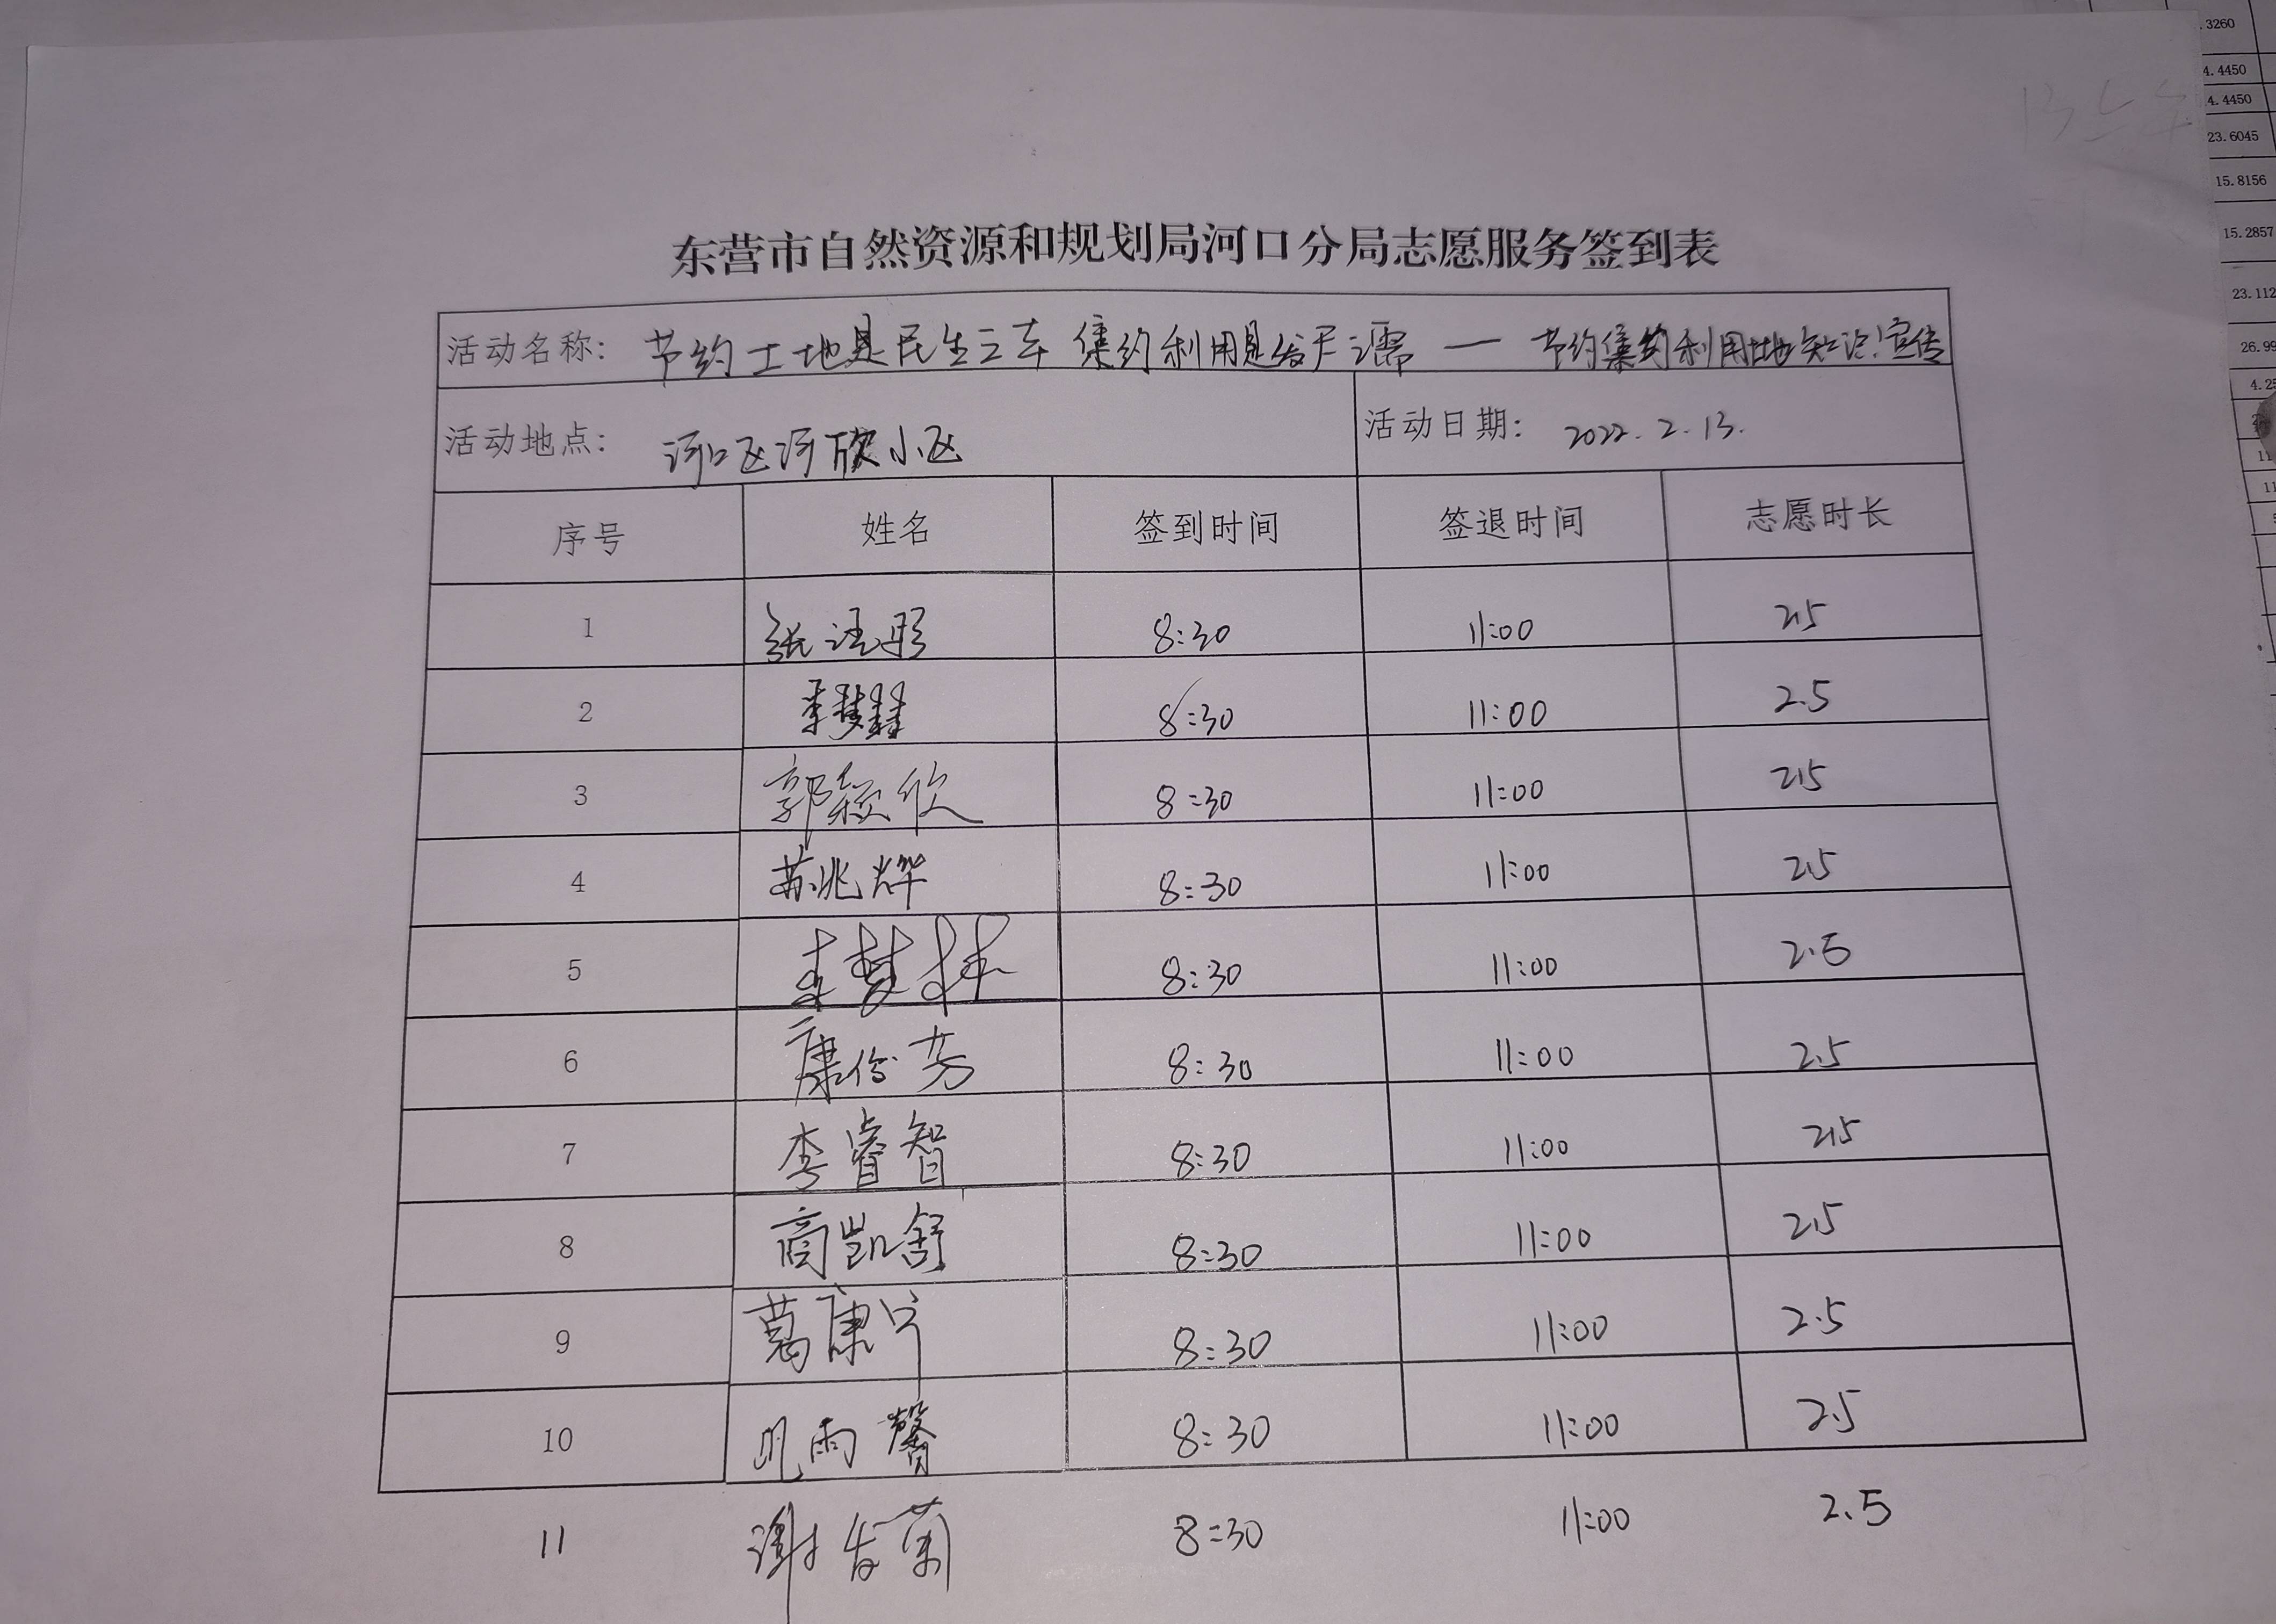 东营市自然资源和规划局河口分局志愿服务签到表
活动名称: 节约土地是民生之本 集约利用是发展之需 — 节约集约利用土地知识宣传
活动地点: 河口区河欣小区 活动日期: 2022.2.13.
序号 姓名 签到时间 签退时间 志愿时长
1 张 8:30 11:00 2.5
2 李 8:30 11:00 2.5
3 郭颖欣 8:30 11:00 2.5
4 苏兆烨 8:30 11:00 2.5
5 李梦 8:30 11:00 2.5
6 康俊芳 8:30 11:00 2.5
7 李睿智 8:30 11:00 2.5
8 商凯舒 8:30 11:00 2.5
9 葛康宁 8:30 11:00 2.5
10 雨馨 8:30 11:00 2.5
11 谢 8:30 11:00 2.5
.3260
4.4450
4.4450
23.6045
15.8156
15.2857
23.112
26.99
4.25
11
11